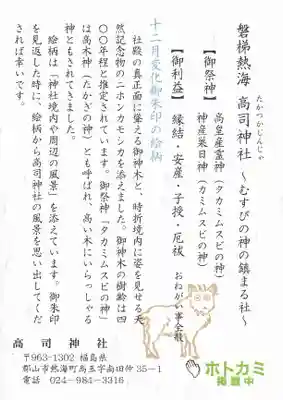 磐梯熱海 高司神社 ~むすびの神の鎮まる社~
たかつかじんじゃ
【御祭神】
高皇産霊神(タカミムスビの神)
神産巣日神(カミムスビの神)
【御利益】 縁結・安産・子授・厄祓 おねがい事全般
十二月変化御朱印の絵柄
社殿の真正面に聳える御神木と、時折境内に姿を見せる天
然記念物のニホンカモシカを添えました。御神木の樹齢は四
〇〇年程と推定されています。御祭神「タカミムスビの神」
は高木神(たかぎの神)とも呼ばれ、高い木にいらっしゃる
神ともされてきました。
絵柄は「神社境内や周辺の風景」を添えています。御朱印
を見返した時に、絵柄から高司神社の風景を思い出してくだ
されば幸いです。
高司神社
〒963-1302 福島県
郡山市熱海町高玉字南田仲35-1
電話 024-984-3316
ホトカミ
掲載中